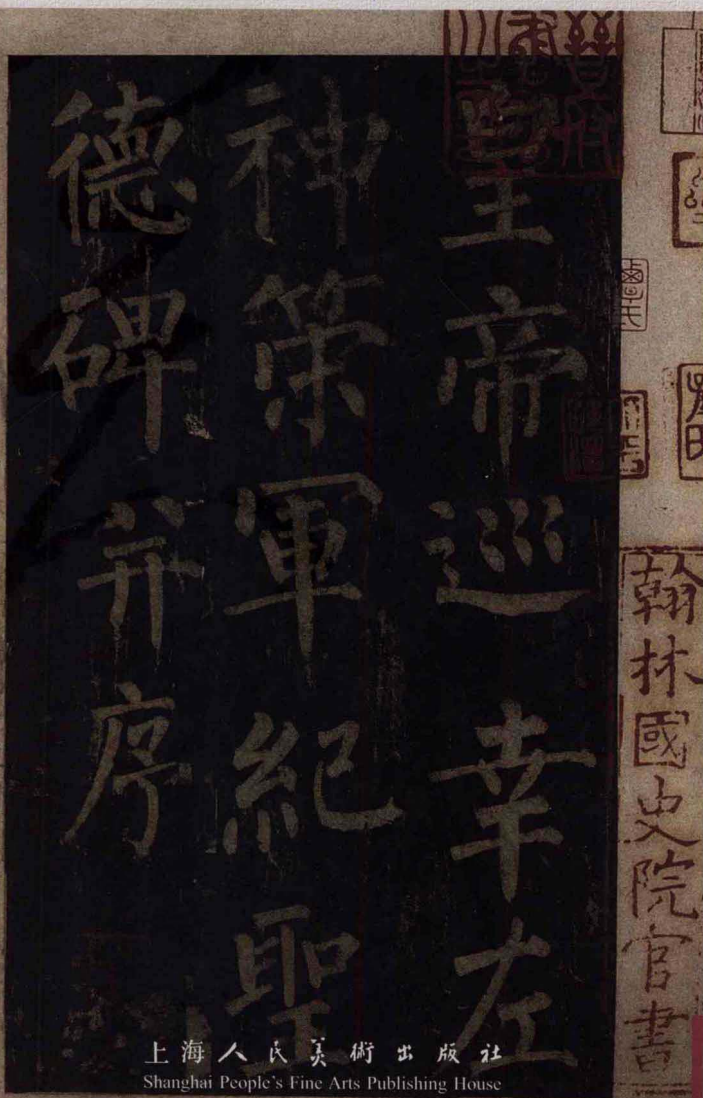 皇帝巡幸左
神策軍紀聖
德碑并序
翰林國史院官書
上海人民美術出版社
Shanghai People's Fine Arts Publishing House